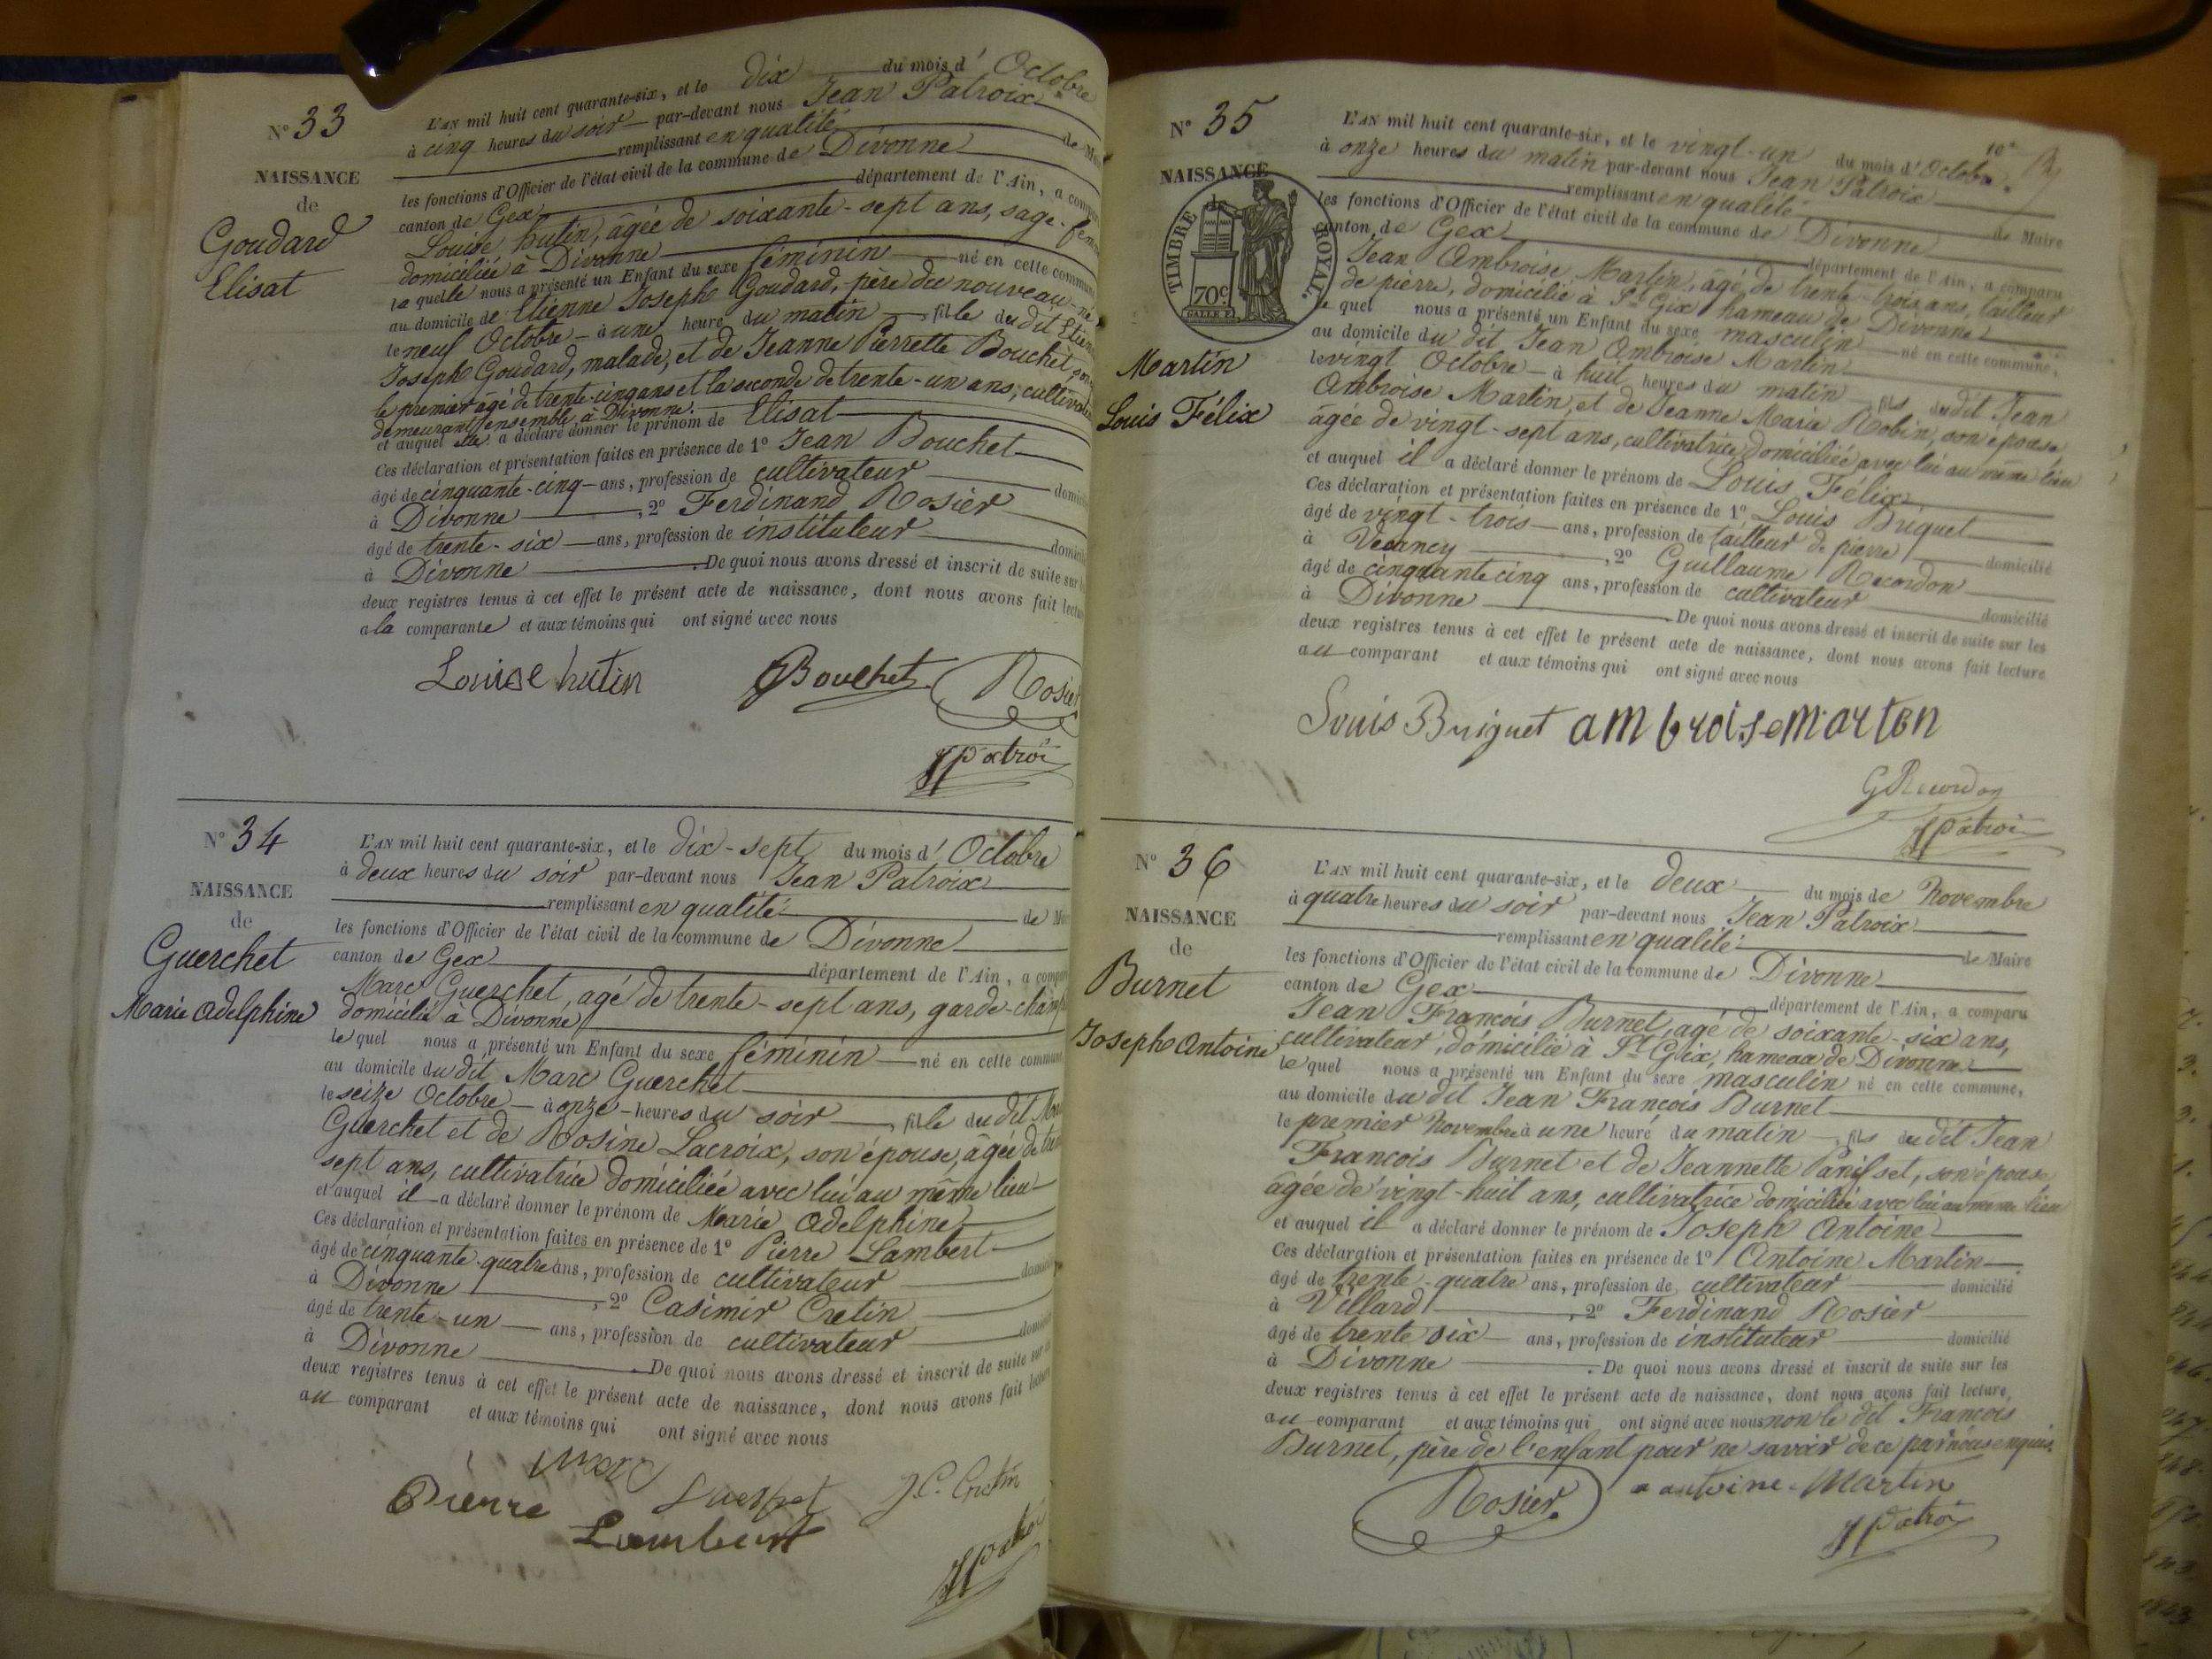 N° 33
NAISSANCE
de
Goudard
Elisat
L'AN mil huit cent quarante-six, et le dix du mois d' Octobre
à cinq heures du soir par-devant nous Jean Patroix
remplissant en qualité de
les fonctions d'Officier de l'état civil de la commune de Divonne
canton de Gex département de l'Ain, a
Louise hutin, âgée de soixante-sept ans, sage-
domiciliée à Divonne
la quelle nous a présenté un Enfant du sexe féminin né en cette
au domicile de Etienne Joseph Goudard, père du nouveau-né
le neuf Octobre à une heure du matin, fille du dit
Joseph Goudard, malade, et de Jeanne Pierrette Bouchet,
le premier âgé de trente-cinq ans et la seconde de trente-un ans,
demeurant ensemble à Divonne.
et auquel elle a déclaré donner le prénom de Elisat
Ces déclaration et présentation faites en présence de 1° Jean Bouchet
âgé de cinquante-cinq ans, profession de cultivateur
à Divonne, 2° Ferdinand Rosier
âgé de trente-six ans, profession de instituteur
à Divonne. De quoi nous avons dressé et inscrit de suite sur
deux registres tenus à cet effet le présent acte de naissance, dont nous avons fait
a la comparante et aux témoins qui ont signé avec nous
Louise hutin Bouchet Rosier
JPatroi
N° 34
NAISSANCE
de
Guerchet
Marie Adelphine
L'AN mil huit cent quarante-six, et le dix-sept du mois d' Octobre
à deux heures du soir par-devant nous Jean Patroix
remplissant en qualité de
les fonctions d'Officier de l'état civil de la commune de Divonne
canton de Gex département de l'Ain, a
Marc Guerchet, agé de trente-sept ans,
domicilié à Divonne
le quel nous a présenté un Enfant du sexe féminin né en cette
au domicile du dit Marc Guerchet
le seize Octobre à onze heures du soir, fille du dit
Guerchet et de Rosine Lacroix, son épouse, âgée de
sept ans, cultivatrice domiciliée avec lui au même lieu
et auquel il a déclaré donner le prénom de Marie Adelphine
Ces déclaration et présentation faites en présence de 1° Pierre Lambert
âgé de cinquante-quatre ans, profession de cultivateur
à Divonne, 2° Casimir Cretin
âgé de trente-un ans, profession de cultivateur
à Divonne. De quoi nous avons dressé et inscrit de suite sur
deux registres tenus à cet effet le présent acte de naissance, dont nous avons fait
au comparant et aux témoins qui ont signé avec nous
Marc
Pierre J.C. Cretin
Lambert
N° 35
NAISSANCE
de
TIMBRE ROYAL.
70c
Martin
Louis Félix
L'AN mil huit cent quarante-six, et le vingt-un du mois d'Octobre
à onze heures du matin par-devant nous Jean Patroix
remplissant en qualité de Maire
les fonctions d'Officier de l'état civil de la commune de Divonne
canton de Gex département de l'Ain, a comparu
Jean Ambroise Martin, âgé de trente-trois ans, tailleur
de pierre, domicilié à St Gix hameau de Divonne
le quel nous a présenté un Enfant du sexe masculin né en cette commune,
au domicile du dit Jean Ambroise Martin
le vingt Octobre à huit heures du matin, fils du dit Jean
Ambroise Martin, et de Jeanne Marie Robin, son épouse
âgée de vingt-sept ans, cultivatrice, domiciliée avec lui au même lieu
et auquel il a déclaré donner le prénom de Louis Félix
Ces déclaration et présentation faites en présence de 1° Louis Briquet
âgé de vingt-trois ans, profession de tailleur de pierre domicilié
à Vesancy, 2° Guillaume Recordon
âgé de cinquante cinq ans, profession de cultivateur domicilié
à Divonne. De quoi nous avons dressé et inscrit de suite sur les
deux registres tenus à cet effet le présent acte de naissance, dont nous avons fait lecture
au comparant et aux témoins qui ont signé avec nous
Louis Briguet ambroise marten
G Recordon
JPatroi
N° 36
NAISSANCE
de
Burnet
Joseph Antoine
L'AN mil huit cent quarante-six, et le deux du mois de Novembre
à quatre heures du soir par-devant nous Jean Patroix
remplissant en qualité de Maire
les fonctions d'Officier de l'état civil de la commune de Divonne
canton de Gex département de l'Ain, a comparu
Jean François Burnet, agé de soixante-six ans,
cultivateur, domicilié à St Gix, hameau de Divonne
le quel nous a présenté un Enfant du sexe masculin né en cette commune,
au domicile du dit Jean François Burnet
le premier Novembre à une heure du matin, fils du dit Jean
François Burnet et de Jeannette Panisset, son épouse
âgée de vingt-huit ans, cultivatrice domiciliée avec lui au même lieu
et auquel il a déclaré donner le prénom de Joseph Antoine
Ces déclaration et présentation faites en présence de 1° Antoine Martin
âgé de trente-quatre ans, profession de cultivateur domicilié
à Villard, 2° Ferdinand Rosier
âgé de trente six ans, profession de instituteur domicilié
à Divonne. De quoi nous avons dressé et inscrit de suite sur les
deux registres tenus à cet effet le présent acte de naissance, dont nous avons fait lecture
au comparant et aux témoins qui ont signé avec nous non le dit François
Burnet, père de l'enfant pour ne savoir de ce par nous enquis.
Rosier. antoine Martin
JPatroi